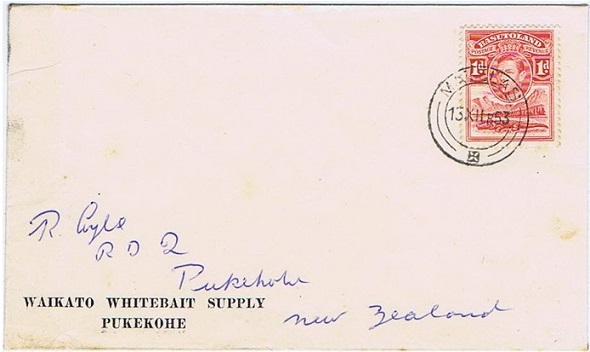 BASUTOLAND
POSTAGE REVENUE
1d 1d
13 XII 53
R. Coyle
R D 2
Pukekohe
WAIKATO WHITEBAIT SUPPLY
PUKEKOHE
New Zealand